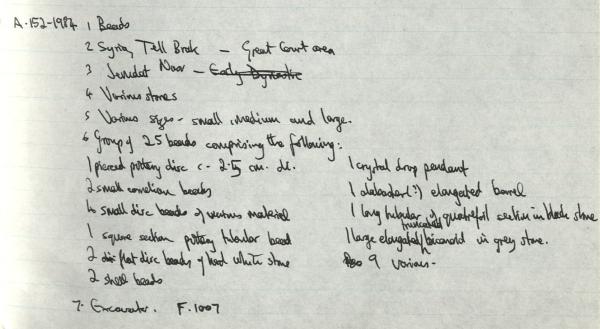 A.152-1984 1 Beads
2 Syria, Tell Brak – Great Court area
3 Jemdat Nasr – Early Dynastic
4 Various stones
5 Various sizes - small, medium and large.
6 Group of 25 beads comprising the following:
1 pierced pottery disc c. 2.5 cm. di.
2 small cornelian beads
4 small disc beads of various material
1 square section pottery tubular bead
2 flat disc beads of hard white stone
2 shell beads
1 crystal drop pendant
1 alabaster(?) elongated barrel
1 long tubular of quatrefoil section in black stone
1 large elongated truncated biconoid in grey stone.
9 various -
7. Excavator. F.1007